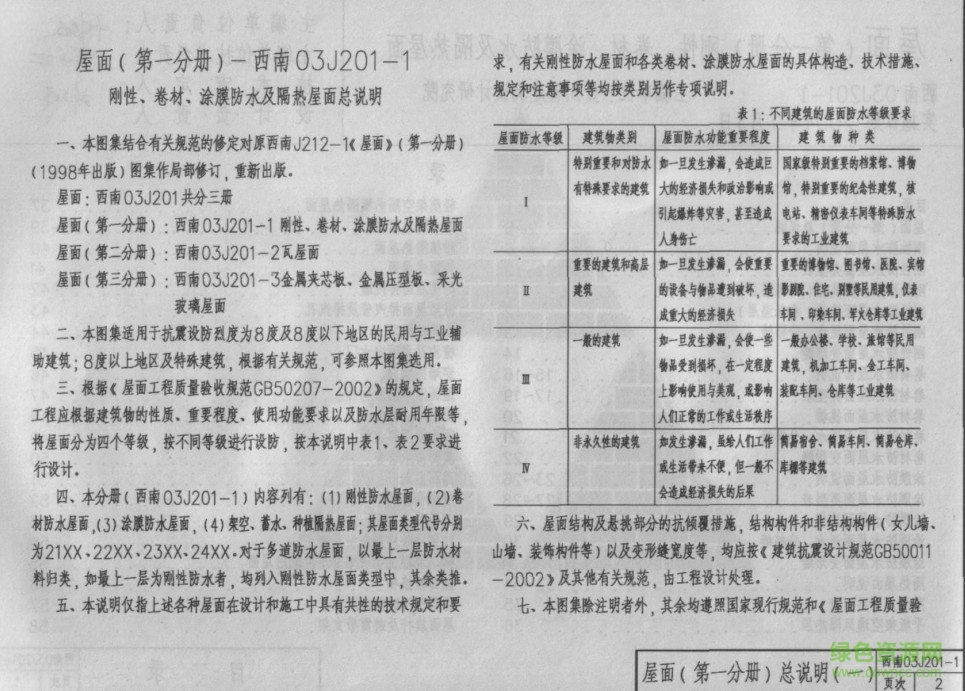 屋面(第一分册)—西南03J201-1
刚性、卷材、涂膜防水及隔热屋面总说明
一、本图集结合有关规范的修定对原西南J212-1《屋面》(第一分册)
(1998年出版)图集作局部修订，重新出版。
屋面：西南03J201共分三册
屋面(第一分册)：西南03J201-1 刚性、卷材、涂膜防水及隔热屋面
屋面(第二分册)：西南03J201-2瓦屋面
屋面(第三分册)：西南03J201-3金属夹芯板、金属压型板、采光
玻璃屋面
二、本图集适用于抗震设防烈度为8度及8度以下地区的民用与工业辅
助建筑；8度以上地区及特殊建筑，根据有关规范，可参照本图集选用。
三、根据《屋面工程质量验收规范GB50207-2002》的规定，屋面
工程应根据建筑物的性质、重要程度、使用功能要求以及防水层耐用年限等，
将屋面分为四个等级，按不同等级进行设防，按本说明中表1、表2要求进
行设计。
四、本分册(西南03J201-1)内容列有：(1)刚性防水屋面，(2)卷
材防水屋面，(3)涂膜防水屋面，(4)架空、蓄水、种植隔热屋面；其屋面类型代号分别
为21XX、22XX、23XX、24XX。对于多道防水屋面，以最上一层防水材
料归类，如最上一层为刚性防水者，均列入刚性防水屋面类型中，其余类推。
五、本说明仅指上述各种屋面在设计和施工中具有共性的技术规定和要
求，有关刚性防水屋面和各类卷材、涂膜防水屋面的具体构造、技术措施、
规定和注意事项等均按类别另作专项说明。
表1：不同建筑的屋面防水等级要求
屋面防水等级 建筑物类别 屋面防水功能重要程度 建筑物种类
特别重要和对防水 如一旦发生渗漏，会造成巨 国家级特别重要的档案馆、博物
有特殊要求的建筑 大的经济损失和政治影响或 馆，特别重要的纪念性建筑，核
I 引起爆炸等灾害，甚至造成 电站、精密仪表车间等特殊防水
人身伤亡 要求的工业建筑
重要的建筑和高层 如一旦发生渗漏，会使重要 重要的博物馆、图书馆、医院、宾馆
II 建筑 的设备与物品遭到破坏，造 影剧院、住宅、别墅等民用建筑，仪表
成重大的经济损失 车间、印染车间、军火仓库等工业建筑
一般的建筑 如一旦发生渗漏，会使一些 一般办公楼、学校、旅馆等民用
物品受到损坏，在一定程度 建筑，机加工车间、金工车间、
III 上影响使用与美观，或影响 装配车间、仓库等工业建筑
人们正常的工作或生活秩序
非永久性的建筑 如发生渗漏，虽给人们工作 简易宿舍、简易车间、简易仓库、
IV 或生活带来不便，但一般不 库棚等建筑
会造成经济损失的后果
六、屋面结构及悬挑部分的抗倾覆措施，结构构件和非结构构件(女儿墙、
山墙、装饰构件等)以及变形缝宽度等，均应按《建筑抗震设计规范GB50011
-2002》及其他有关规范，由工程设计处理。
七、本图集除注明者外，其余均遵照国家现行规范和《屋面工程质量验
屋面(第一分册)总说明(一) 西南03J201-1
页次 2
绿色资源网